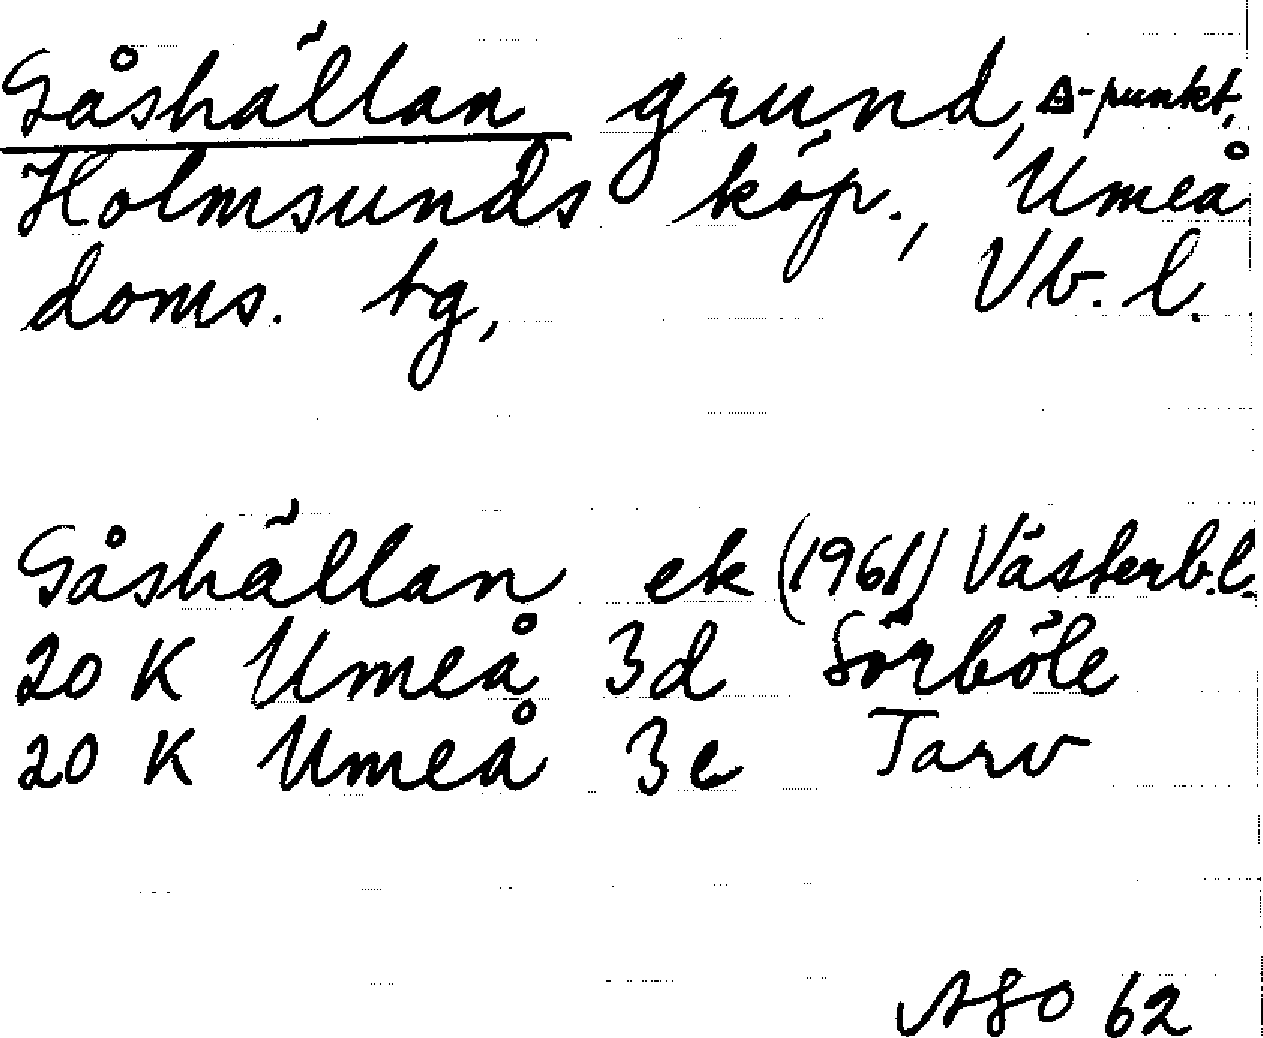 Gåshällan grund, △-punkt,
Holmsunds köp., Umeå
doms. tg, Vb. l.
Gåshällan ek (1961) Västerb.l.
20 K Umeå 3d Sörböle
20 K Umeå 3e Tarv
ASO 62